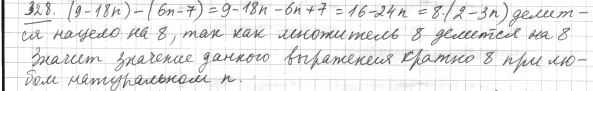 328. (9-18n)-(6n-7)=9-18n-6n+7=16-24n=8·(2-3n) делит-
ся нацело на 8, так как множитель 8 делится на 8
Значит значение данного выражения кратно 8 при лю-
бом натуральном n.